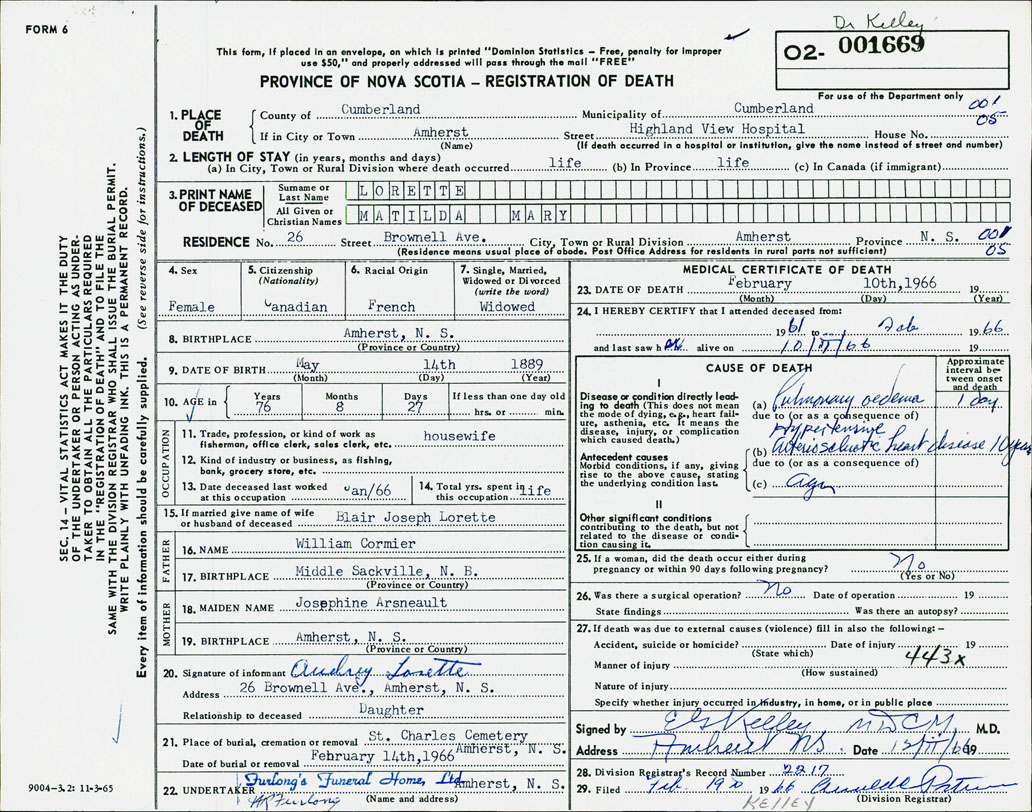 FORM 6
Dr Kelley
This form, if placed in an envelope, on which is printed "Dominion Statistics – Free, penalty for improper
use $50," and properly addressed will pass through the mail "FREE"
O2- 001669
PROVINCE OF NOVA SCOTIA – REGISTRATION OF DEATH
For use of the Department only
1. PLACE OF DEATH
County of Cumberland Municipality of Cumberland 001
05
If in City or Town Amherst Street Highland View Hospital House No.
(Name) (If death occurred in a hospital or institution, give the name instead of street and number)
2. LENGTH OF STAY (in years, months and days)
(a) In City, Town or Rural Division where death occurred life (b) In Province life (c) In Canada (if immigrant)
3. PRINT NAME OF DECEASED
Surname or Last Name LORETTE
All Given or Christian Names MATILDA MARY
RESIDENCE No. 26 Street Brownell Ave. City, Town or Rural Division Amherst Province N. S. 001
(Residence means usual place of abode. Post Office Address for residents in rural parts not sufficient) 05
4. Sex
Female
5. Citizenship
(Nationality)
Canadian
6. Racial Origin
French
7. Single, Married,
Widowed or Divorced
(write the word)
Widowed
8. BIRTHPLACE Amherst, N. S.
(Province or Country)
9. DATE OF BIRTH May 14th 1889
(Month) (Day) (Year)
10. AGE in Years Months Days If less than one day old
76 8 27 hrs. or min.
OCCUPATION
11. Trade, profession, or kind of work as
fishermon, office clerk, sales clerk, etc. housewife
12. Kind of industry or business, as fishing,
bank, grocery store, etc.
13. Date deceased last worked
at this occupation Jan/66
14. Total yrs. spent in
this occupation life
15. If married give name of wife
or husband of deceased Blair Joseph Lorette
FATHER
16. NAME William Cormier
17. BIRTHPLACE Middle Sackville, N. B.
(Province or Country)
MOTHER
18. MAIDEN NAME Josephine Arsneault
19. BIRTHPLACE Amherst, N. S.
(Province or Country)
20. Signature of informant Audrey Lorette
Address 26 Brownell Ave., Amherst, N. S.
Relationship to deceased Daughter
21. Place of burial, cremation or removal St. Charles Cemetery
Amherst, N. S.
Date of burial or removal February 14th,1966
22. UNDERTAKER Furlong's Funeral Home, Ltd Amherst, N. S.
Furlong (Name and address)
MEDICAL CERTIFICATE OF DEATH
23. DATE OF DEATH February 10th,1966 19
(Month) (Day) (Year)
24. I HEREBY CERTIFY that I attended deceased from:
1961 to Feb 1966
and last saw her alive on 10/II/66 19
CAUSE OF DEATH
Approximate
interval be-
tween onset
and death
I
Disease or condition directly lead-
ing to death (This does not mean
the mode of dying, e.g., heart fail-
ure, asthenia, etc. It means the
disease, injury, or complication
which caused death.)
(a) Pulmonary oedema 1 day
due to (or as a consequence of)
Antecedent causes
Morbid conditions, if any, giving
rise to the above cause, stating
the underlying condition last.
Hypertensive
(b) arteriosclerotic heart disease 10 years
due to (or as a consequence of)
(c) age
II
Other significant conditions
contributing to the death, but not
related to the disease or condi-
tion causing it.
25. If a woman, did the death occur either during
pregnancy or within 90 days following pregnancy? No
(Yes or No)
26. Was there a surgical operation? No Date of operation 19
State findings Was there an autopsy?
27. If death was due to external causes (violence) fill in also the following: –
Accident, suicide or homicide? Date of injury 19
(State which) 443x
Manner of injury
(How sustained)
Nature of injury
Specify whether injury occurred in industry, in home, or in public place
Signed by E G Kelley MD CM M.D.
Address Amherst NS Date 12/II/66 19
28. Division Registrar's Record Number 2217
29. Filed Feb. 19 1966
KELLEY (Division Registrar)
SEC. 14 – VITAL STATISTICS ACT MAKES IT THE DUTY
OF THE UNDERTAKER OR PERSON ACTING AS UNDER-
TAKER TO OBTAIN ALL THE PARTICULARS REQUIRED
IN THE "REGISTRATION OF DEATH" AND TO FILE THE
SAME WITH THE DIVISION REGISTRAR WHO SHALL ISSUE THE BURIAL PERMIT.
WRITE PLAINLY WITH UNFADING INK. THIS IS A PERMANENT RECORD.
Every item of information should be carefully supplied. (See reverse side for instructions.)
9004-3.2: 11-3-65